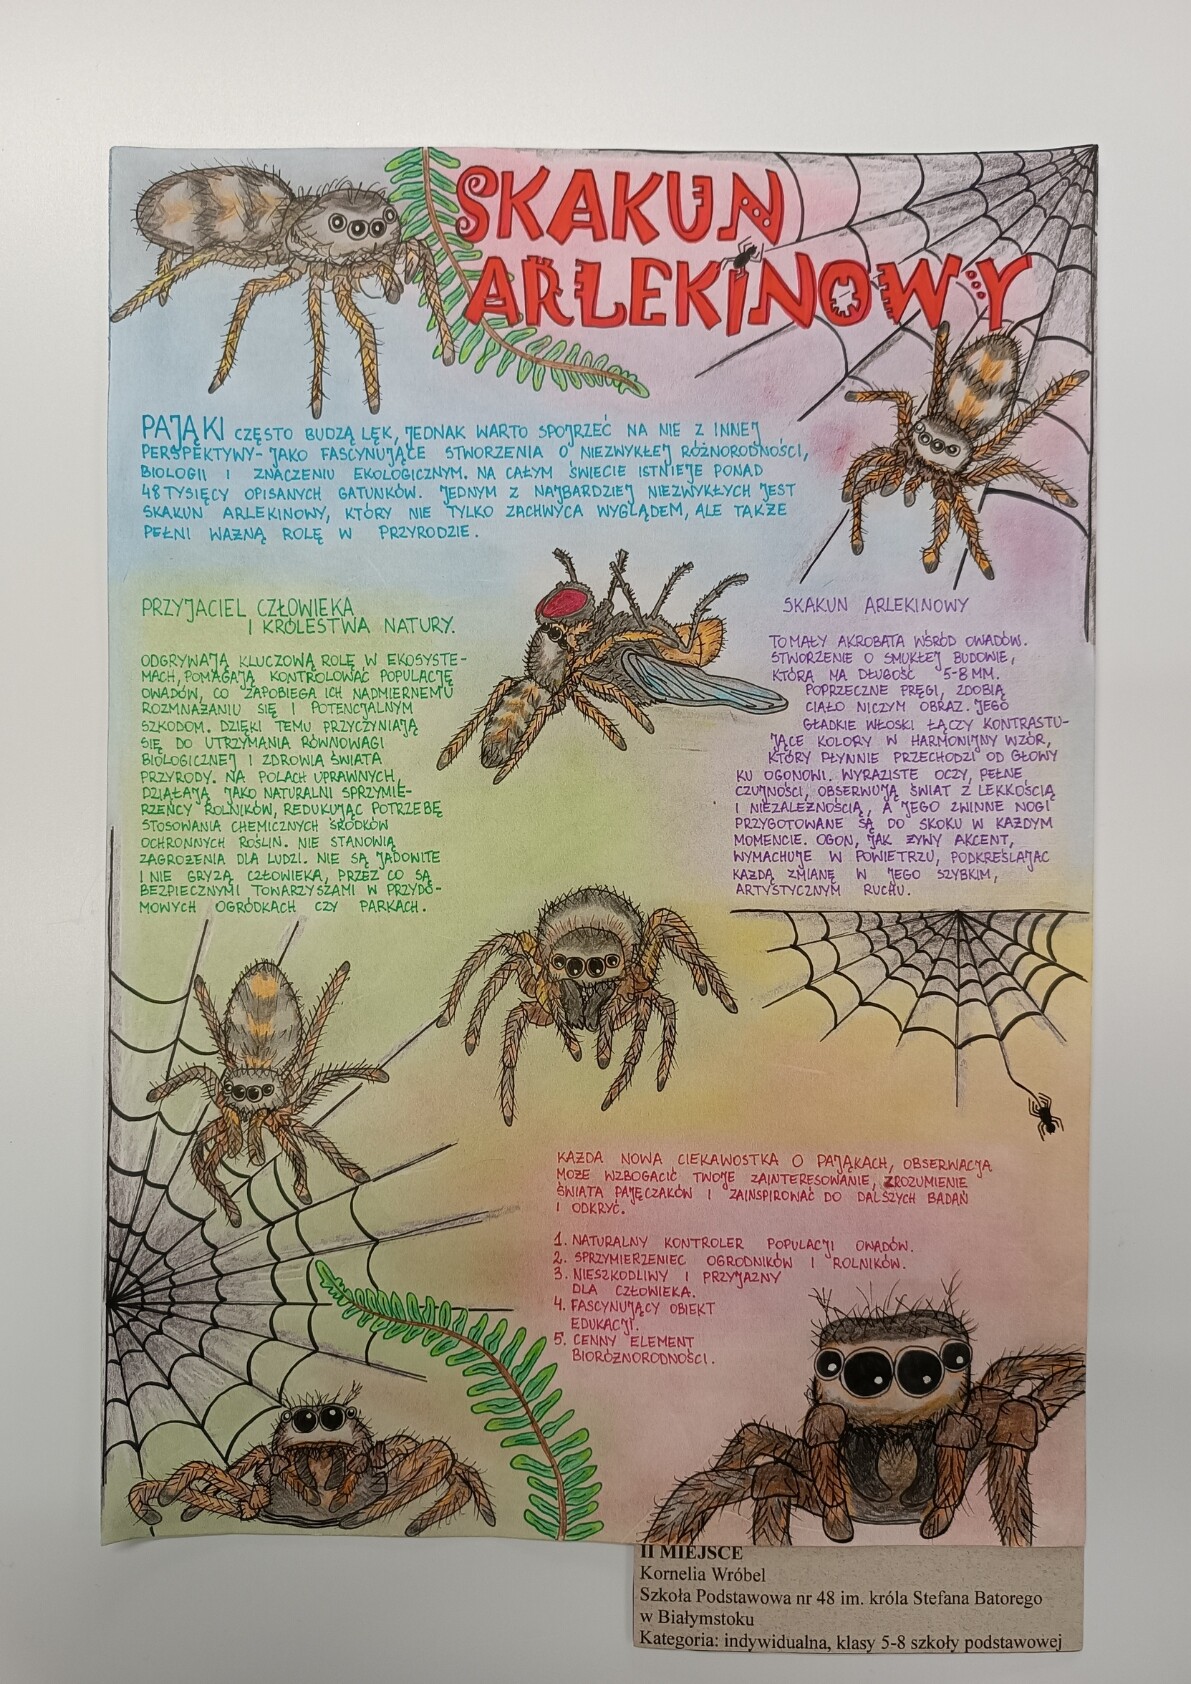 SKAKUN
ARLEKINOWY
PAJĄKI CZĘSTO BUDZĄ LĘK, JEDNAK WARTO SPOJRZEĆ NA NIE Z INNEJ
PERSPEKTYWY- JAKO FASCYNUJĄCE STWORZENIA O NIEZWYKŁEJ RÓŻNORODNOŚCI,
BIOLOGII I ZNACZENIU EKOLOGICZNYM. NA CAŁYM ŚWIECIE ISTNIEJE PONAD
48 TYSIĘCY OPISANYCH GATUNKÓW. JEDNYM Z NAJBARDZIEJ NIEZWYKŁYCH JEST
SKAKUN ARLEKINOWY, KTÓRY NIE TYLKO ZACHWYCA WYGLĄDEM, ALE TAKŻE
PEŁNI WAŻNĄ ROLĘ W PRZYRODZIE.
PRZYJACIEL CZŁOWIEKA
I KRÓLESTWA NATURY.
ODGRYWAJĄ KLUCZOWĄ ROLĘ W EKOSYSTE-
MACH, POMAGAJĄ KONTROLOWAĆ POPULACJĘ
OWADÓW, CO ZAPOBIEGA ICH NADMIERNEMU
ROZMNAŻANIU SIĘ I POTENCJALNYM
SZKODOM. DZIĘKI TEMU PRZYCZYNIAJĄ
SIĘ DO UTRZYMANIA RÓWNOWAGI
BIOLOGICZNEJ I ZDROWIA ŚWIATA
PRZYRODY. NA POLACH UPRAWNYCH,
DZIAŁAJĄ JAKO NATURALNI SPRZYMIE-
RZEŃCY ROLNIKÓW, REDUKUJĄC POTRZEBĘ
STOSOWANIA CHEMICZNYCH ŚRODKÓW
OCHRONNYCH ROŚLIN. NIE STANOWIĄ
ZAGROŻENIA DLA LUDZI. NIE SĄ JADOWITE
I NIE GRYZĄ CZŁOWIEKA, PRZEZ CO SĄ
BEZPIECZNYMI TOWARZYSZAMI W PRZYDO-
MOWYCH OGRÓDKACH CZY PARKACH.
SKAKUN ARLEKINOWY
TO MAŁY AKROBATA WŚRÓD OWADÓW.
STWORZENIE O SMUKŁEJ BUDOWIE,
KTÓRĄ NA DŁUGOŚĆ 5-8 MM.
POPRZECZNE PRĘGI, ZDOBIĄ
CIAŁO NICZYM OBRAZ. JEGO
GŁADKIE WŁOSKI ŁĄCZY KONTRASTU-
JĄCE KOLORY W HARMONIJNY WZÓR,
KTÓRY PŁYNNIE PRZECHODZI OD GŁOWY
KU OGONOWI. WYRAZISTE OCZY, PEŁNE
CZUJNOŚCI, OBSERWUJĄ ŚWIAT Z LEKKOŚCIĄ
I NIEZALEŻNOŚCIĄ, A JEGO ZWINNE NOGI
PRZYGOTOWANE SĄ DO SKOKU W KAŻDYM
MOMENCIE. OGON, JAK ŻYWY AKCENT,
WYMACHUJE W POWIETRZU, PODKREŚLAJĄC
KAŻDĄ ZMIANĘ W JEGO SZYBKIM,
ARTYSTYCZNYM RUCHU.
KAŻDA NOWA CIEKAWOSTKA O PAJĄKACH, OBSERWACJA
MOŻE WZBOGACIĆ TWOJE ZAINTERESOWANIE, ZROZUMIENIE
ŚWIATA PAJĘCZAKÓW I ZAINSPIROWAĆ DO DALSZYCH BADAŃ
I ODKRYĆ.
1. NATURALNY KONTROLER POPULACJI OWADÓW.
2. SPRZYMIERZENIEC OGRODNIKÓW I ROLNIKÓW.
3. NIESZKODLIWY I PRZYJAZNY
DLA CZŁOWIEKA.
4. FASCYNUJĄCY OBIEKT
EDUKACJI.
5. CENNY ELEMENT
BIORÓŻNORODNOŚCI.
II MIEJSCE
Kornelia Wróbel
Szkoła Podstawowa nr 48 im. króla Stefana Batorego
w Białymstoku
Kategoria: indywidualna, klasy 5-8 szkoły podstawowej